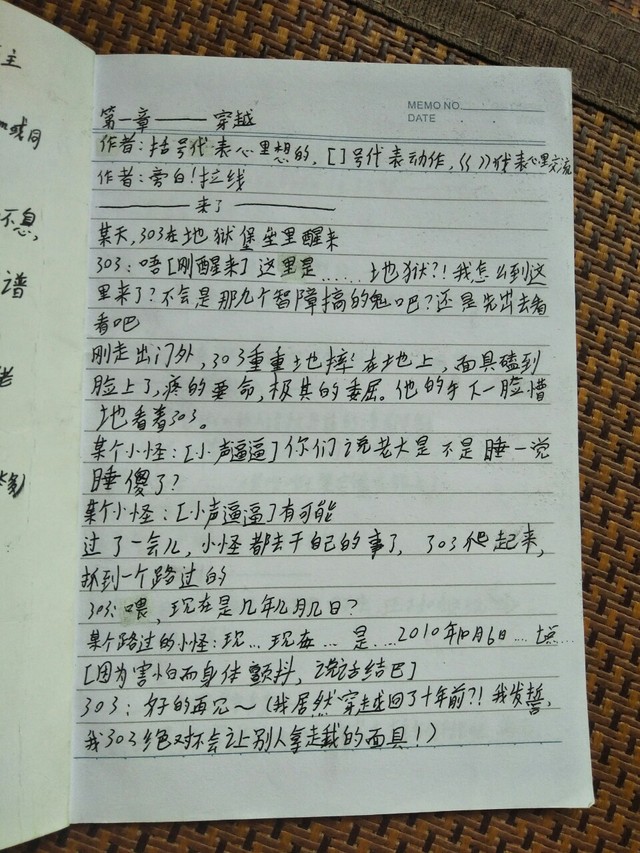 主
同
不息,
谱
老
MEMO NO.
DATE
第一章——穿越
作者:括号代表心里想的,[ ]号代表动作,《 》代表心里交流
作者:旁白!拉线
——来了——
某天,303在地狱堡垒里醒来
303:唔[刚醒来]这里是……地狱?!我怎么到这
里来了?不会是那几个智障搞的鬼吧?还是先出去看
看吧
刚走出门外,303重重地摔在地上,面具磕到
脸上了,疼的要命,极其的委屈。他的手下一脸懵
地看着303。
某个小怪:[小声逼逼]你们说老大是不是睡一觉
睡傻了?
某个小怪:[小声逼逼]有可能
过了一会儿,小怪都去干自己的事了,303爬起来,
抓到一个路过的
303:喂,现在是几年几月几日?
某个路过的小怪:现…现在…是…2010年10月6日…
[因为害怕而身体颤抖,说话结巴]
303:好的再见~(我居然穿越回了十年前?!我发誓,
我303绝对不会让别人拿走我的面具!)